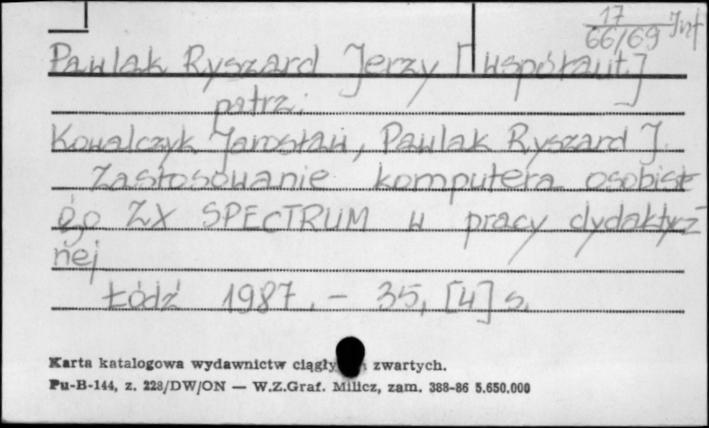 17
66/69 Inf
Pawlak Ryszard Jerzy [współaut.]
patrz:
Kowalczyk Jarosław, Pawlak Ryszard J.
Zastosowanie komputera osobist
ego ZX SPECTRUM w pracy dydaktycz
nej
Łódź 1987. - 35, [4] s.
Karta katalogowa wydawnictw ciągły zwartych.
Pu-B-144, z. 228/DW/ON — W.Z.Graf. Milicz, zam. 388-86 5.650.000